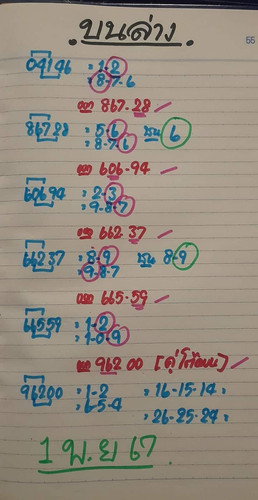 บนล่าง
55
04146 = 1-2
= 8-7-6
ออก 867-28
86728 = 5-6 ชน 6
= 8-7-6
ออก 606-94
60694 = 2-3
= 9-8-7
ออก 662 37
66237 = 8-9 ชน 8-9
= 9-8-7
ออก 665-59
66559 = 1-2
= 1-0-9
ออก 962 00
96200 = 1-2 = 16-15-14 =
= 6-5-4
= 26-25-24 =
1 พ.ย 67